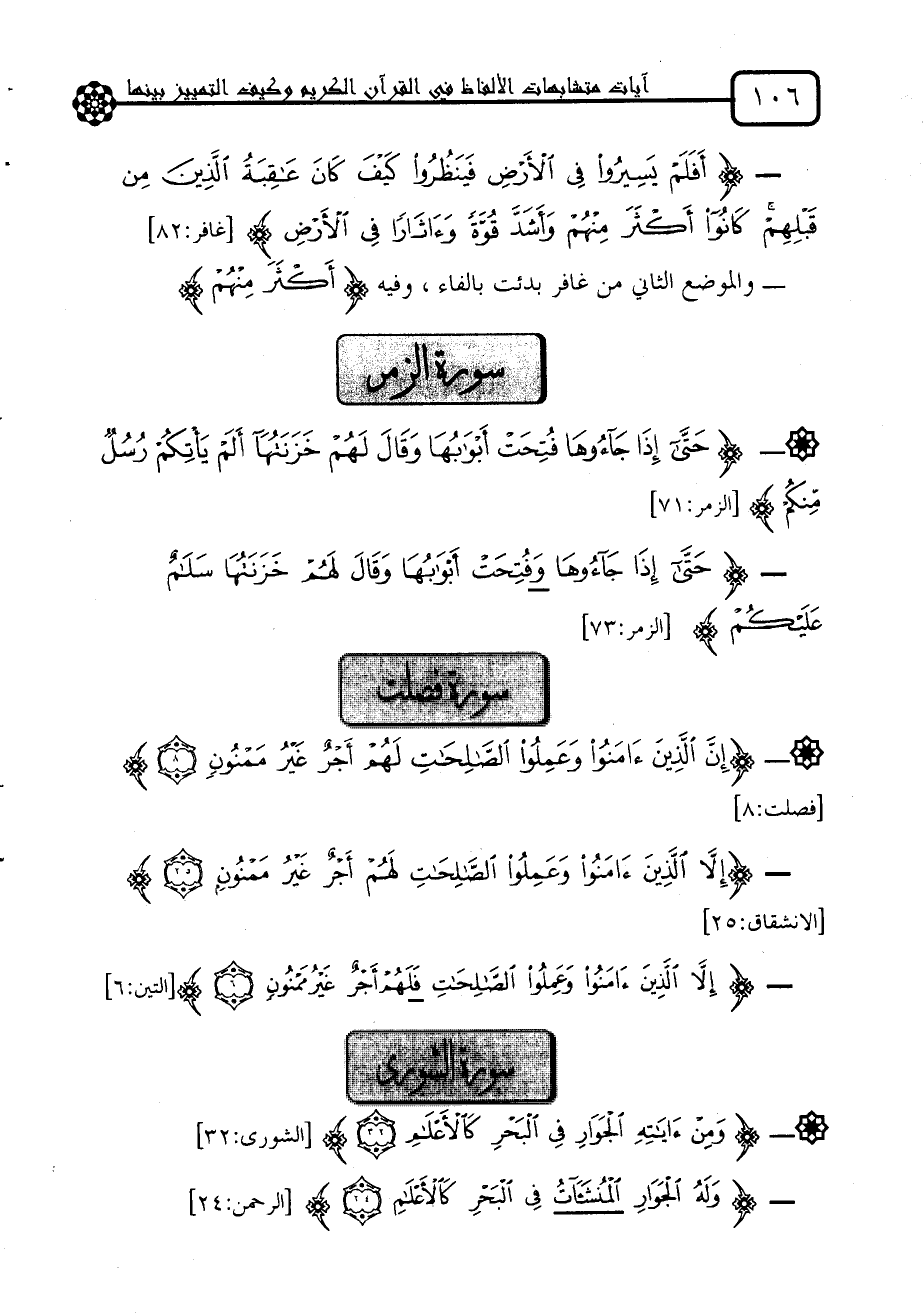 ١٠٦
آيات متشابهات الألفاظ في القرآن الكريم وكيف التمييز بينها
— ﴿ أَفَلَمْ يَسِيرُوا۟ فِى ٱلْأَرْضِ فَيَنظُرُوا۟ كَيْفَ كَانَ عَـٰقِبَةُ ٱلَّذِينَ مِن
قَبْلِهِمْ ۚ كَانُوٓا۟ أَكْثَرَ مِنْهُمْ وَأَشَدَّ قُوَّةً وَءَاثَارًا فِى ٱلْأَرْضِ ﴾ [غافر:٨٢]
— والموضع الثاني من غافر بدئت بالفاء ، وفيه ﴿ أَكْثَرَ مِنْهُمْ ﴾
سورة الزمر
— ﴿ حَتَّىٰٓ إِذَا جَآءُوهَا فُتِحَتْ أَبْوَٰبُهَا وَقَالَ لَهُمْ خَزَنَتُهَآ أَلَمْ يَأْتِكُمْ رُسُلٌ
مِّنكُمْ ﴾ [الزمر:٧١]
— ﴿ حَتَّىٰٓ إِذَا جَآءُوهَا وَفُتِحَتْ أَبْوَٰبُهَا وَقَالَ لَهُمْ خَزَنَتُهَا سَلَـٰمٌ
عَلَيْكُمْ ﴾ [الزمر:٧٣]
سورة فصلت
— ﴿ إِنَّ ٱلَّذِينَ ءَامَنُوا۟ وَعَمِلُوا۟ ٱلصَّـٰلِحَـٰتِ لَهُمْ أَجْرٌ غَيْرُ مَمْنُونٍ ٨ ﴾
[فصلت:٨]
— ﴿ إِلَّا ٱلَّذِينَ ءَامَنُوا۟ وَعَمِلُوا۟ ٱلصَّـٰلِحَـٰتِ لَهُمْ أَجْرٌ غَيْرُ مَمْنُونٍ ٢٥ ﴾
[الانشقاق:٢٥]
— ﴿ إِلَّا ٱلَّذِينَ ءَامَنُوا۟ وَعَمِلُوا۟ ٱلصَّـٰلِحَـٰتِ فَلَهُمْ أَجْرٌ غَيْرُ مَمْنُونٍ ٦ ﴾ [التين:٦]
سورة الشورى
— ﴿ وَمِنْ ءَايَـٰتِهِ ٱلْجَوَارِ فِى ٱلْبَحْرِ كَٱلْأَعْلَـٰمِ ٣٢ ﴾ [الشورى:٣٢]
— ﴿ وَلَهُ ٱلْجَوَارِ ٱلْمُنشَـَٔاتُ فِى ٱلْبَحْرِ كَٱلْأَعْلَـٰمِ ٢٤ ﴾ [الرحمن:٢٤]